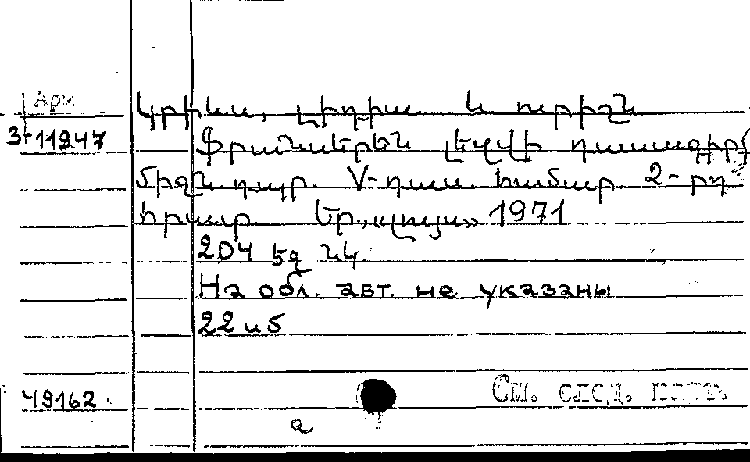 Арм
3-11247
Կրինսա, Լիդիա և ուրիշն
Ֆրանսերեն լեզվի դասագիրք
միջն. դպր. V-դաս. համար 2-րդ
հրատ. Եր., «Լույս» 1971
204 էջ նկ.
На обл. авт. не указаны
22 и 5
49162
См. след. карт.
а